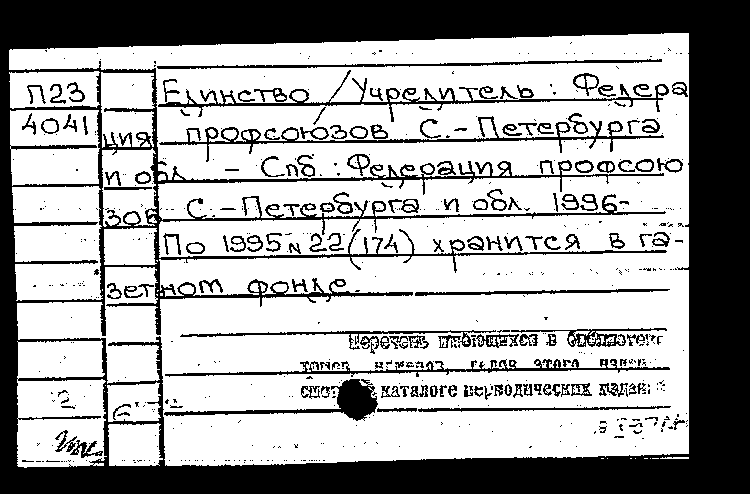 П23 Единство / Учредитель: Федера
4041 ция профсоюзов С.-Петербурга
и обл. – Спб.: Федерация профсою
зов С.-Петербурга и обл., 1996-
По 1995 № 22 (174) хранится в га-
зетном фонде.
Перечень имеющихся в библиотеке
томов, номеров, годов этого издан
каталоге периодических издан
2